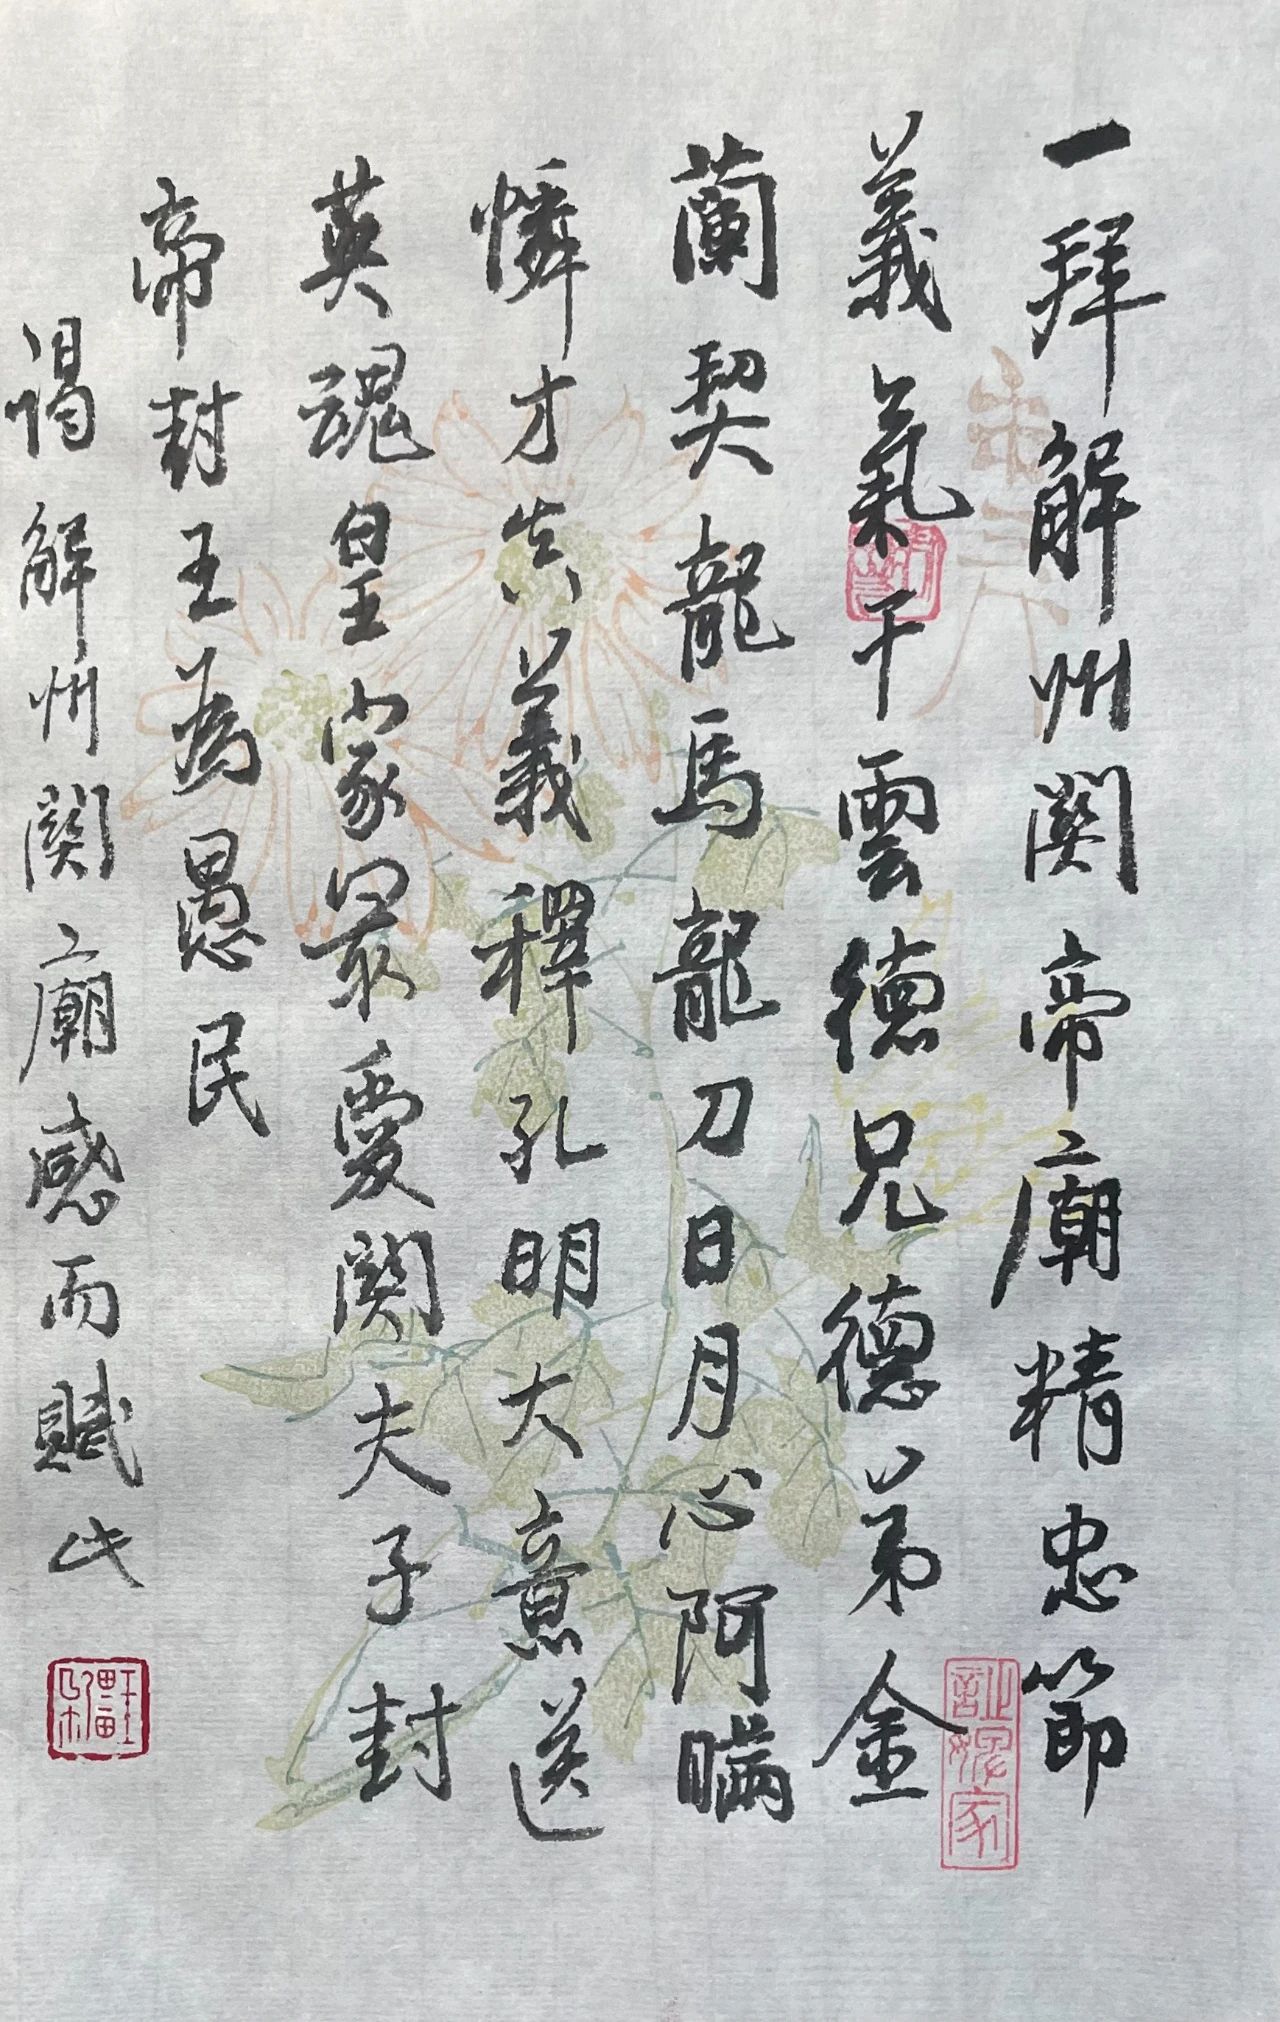 一拜解州関帝廟精忠節
義氣干雲德兄德弟金
蘭契龍馬龍刀日月心阿瞞
憐才真義釋孔明大意送
英魂皇家最愛関夫子封
帝封王為愚民
謁解州関廟感而賦此